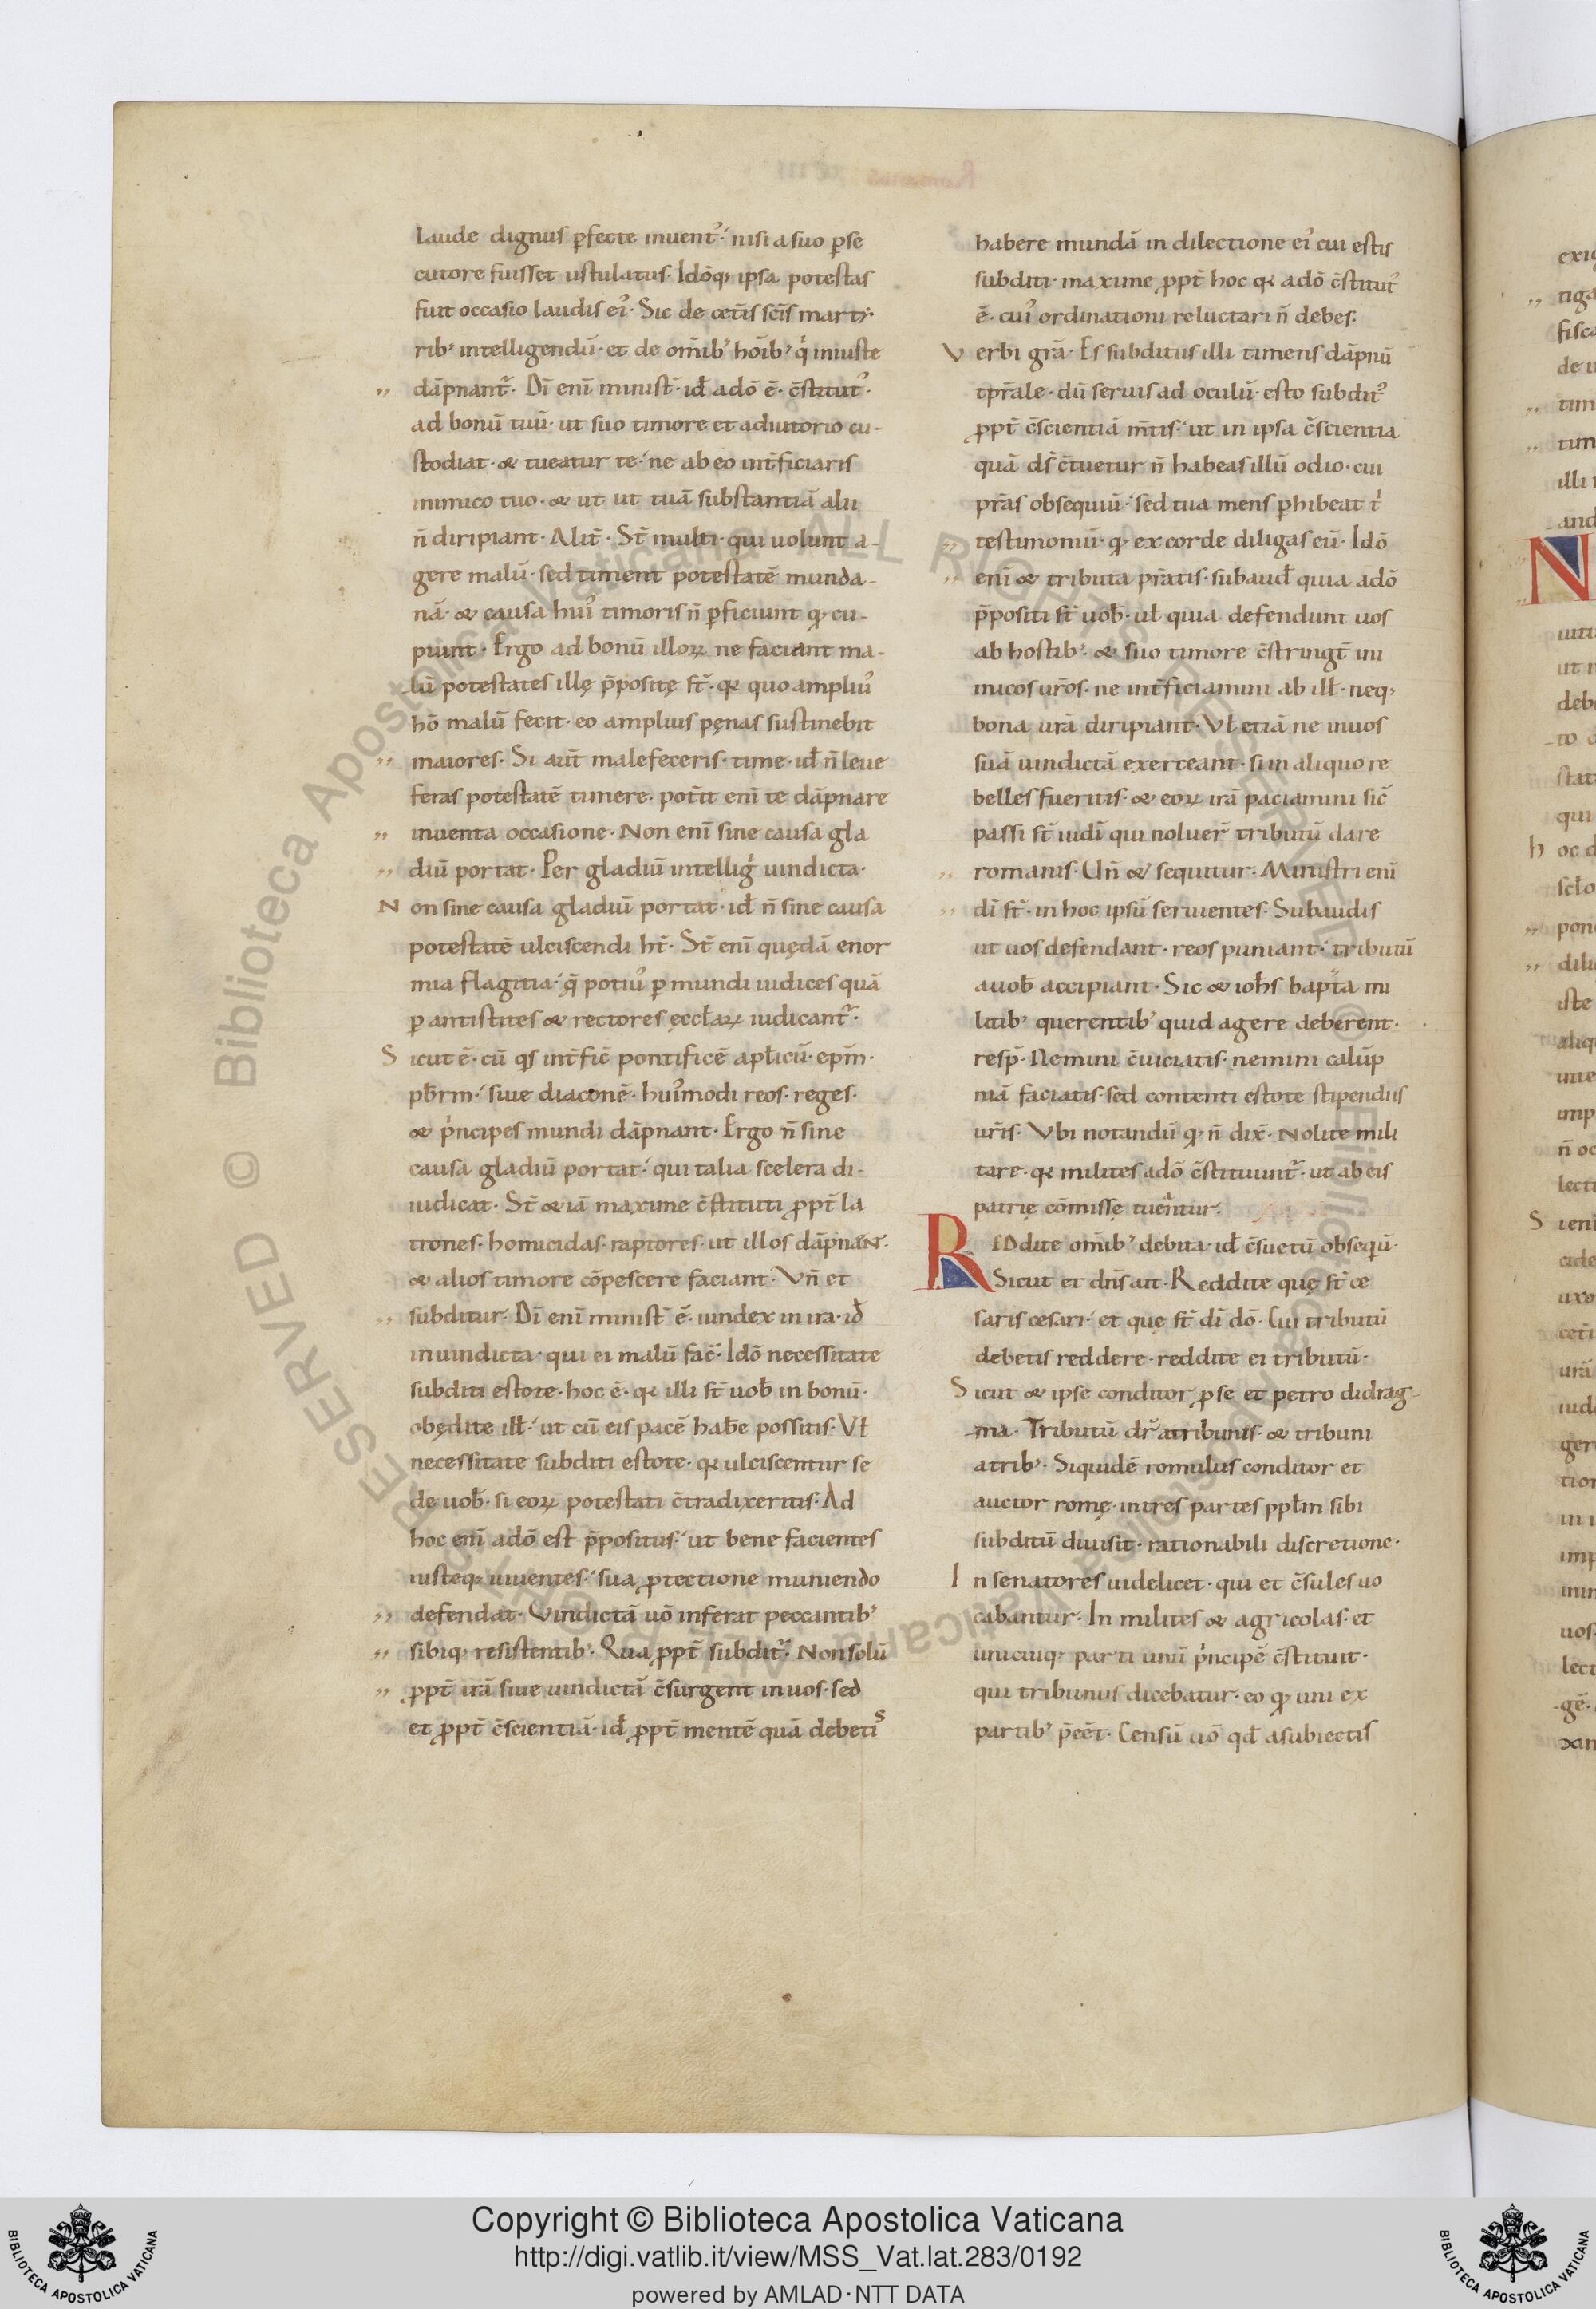 laude dignus ꝑfecte inuent᷒. nisi a suo ꝑse
cutore fuisset ustulatus. Idōq; ipsa potestas
fuit occasio laudis ei᷒. Sic de cet̄is sc̄is marty
rib; intelligendū. et de om̄ib; hōīb; qͥ iniuste
dāpnant᷑. Dī enī minist̄. id̄ adō ē. c̄stitut᷒.
ad bonū tuū. ut suo timore et adiutorio cu-
stodiat. & tueatur te. ne ab eo int̄ficiaris
inimico tuo. & ut ut tuā substantiā alii
n̄ diripiant. Alit̄. St̄ multi. qui uolunt a-
gere malū. sed timent potestatē munda-
nā. & causa hui᷒ timoris n̄ ꝑficiunt qͩ cu-
piunt. Ergo ad bonū illoꝝ ne faciant ma-
lū potestates illę p̄positę st̄. qꝛ quo ampliu᷒
hō malū fecit. eo amplius pęnas sustinebit
maiores. Si aut̄ malefeceris. time. id̄ n̄ leue
feras potestatē timere. pot̄it enī te dāpnare
inuenta occasione. Non enī sine causa gla
diū portat. Per gladiū intelligͥ uindicta.
Non sine causa gladiū portat. id̄ n̄ sine causa
potestatē ulciscendi ht̄. St̄ enī quędā enor
mia flagitia. q̄ potiu᷒ ꝑ mundi iudices quā
ꝑ antistites & rectores ęccl̄aꝝ iudicant᷑.
Sicut ē. cū qͥs int̄fic̄ pontificē apl̄icū. ep̄m.
pb̄rm. siue diaconē. hui᷒modi reos. reges.
& pͥncipes mundi dāpnant. Ergo n̄ sine
causa gladiū portat. qui talia scelera di-
iudicat. St̄ & iā maxime c̄stituti ꝓpt̄ la
trones. homicidas. raptores. ut illos dāpnent.
& alios timore cōpescere faciant. Vn̄ et
subditur. Dī enī minist̄ ē. uindex in ira. id̄
in uindicta. qui ei malū fac̄. Idō necessitate
subditi estote. hoc ē. qꝛ illi st̄ uob̄ in bonū.
obędite ill̄. ut cū eis pacē hab̄e possitis. Vl̄
necessitate subditi estote. qꝛ ulciscentur se
de uob̄. si eoꝝ potestati c̄tradixeritis. Ad
hoc enī adō est p̄positus. ut bene facientes
iusteq; uiuentes. sua ꝓtectione muniendo
defendat. Vindictā uō inferat peccantib;
sibiq; resistentib;. Qua ꝓpt̄ subdit᷑. Non solū
ꝓpt̄ irā siue uindictā c̄surgent in uos. sed
et ꝓpt̄ c̄scientiā. id̄ ꝓpt̄ mentē quā debetis
habere mundā in dilectione ei᷒ cui estis
subditi. maxime ꝓpt̄ hoc qꝛ adō c̄stitut᷒
ē. cui᷒ ordinationi reluctari n̄ debes.
Verbi grā. Es subditus illi timens dāpnū
tp̄rale. dū seruis ad oculū. esto subdit᷒
ꝓpt̄ c̄scientiā m̄tis. ut in ipsa c̄scientia
quā ds̄ c̄tuetur n̄ habeas illū odio. cui
pr̄as obsequiū. sed tua mens ꝑhibeat tͥ
testimoniū. qͩ ex corde diligas eū. Idō
enī & tributa pr̄atis. subaud̄ quia adō
p̄positi st̄ uob̄. ul̄ quia defendunt uos
ab hostib;. & suo timore c̄stringt̄ ini
micos ur̄os. ne int̄ficiamini ab ill̄. neq;
bona urā diripiant. Vl̄ etiā ne in uos
suā uindictā exerceant. si in aliquo re
belles fueritis. & eoꝝ irā paciamini sic̄
passi st̄ iudī qui noluer̄ tributū dare
romanis. Un̄ & sequitur. Ministri enī
dī st̄. in hoc ipsū seruientes. Subaudis
ut uos defendant. reos puniant. tributū
a uob̄ accipiant. Sic & ioh̄s bapt̄a mi
litib; querentib; quid agere deberent.
resp̄. Nemini c̄uiciatis. nemini calūp
niā faciatis. sed contenti estote stipendiis
ur̄is. Vbi notandū qͩ n̄ dix̄. Nolite mili
tare. qꝛ milites adō c̄stituunt᷑. ut ab eis
patrię cōmissę tuentur.
REDdite om̄ib; debita. id̄ c̄suetū obseqū.
Sicut et dn̄s ait. Reddite quę st̄ ce
saris cesari. et quę st̄ dī dō. Cui tributū
debetis reddere. reddite ei tributū.
Sicut & ipse conditor ꝓ se et petro didrag-
ma. Tributū dr̄ a tribunis. & tribuni
a trib;. Siquidē romulus conditor et
auctor romę. in tres partes ppl̄m sibi
subditū diuisit. rationabili discretione.
In senatores uidelicet. qui et c̄sules uo
cabantur. In milites & agricolas. et
unicuiq; parti unū pͥncipē c̄stituit.
qui tribunus dicebatur. eo qͩ uni ex
partib; p̄eēt. Censū uō qd̄ a subiectis
Copyright © Biblioteca Apostolica Vaticana
http://digi.vatlib.it/view/MSS_Vat.lat.283/0192
powered by AMLAD·NTT DATA